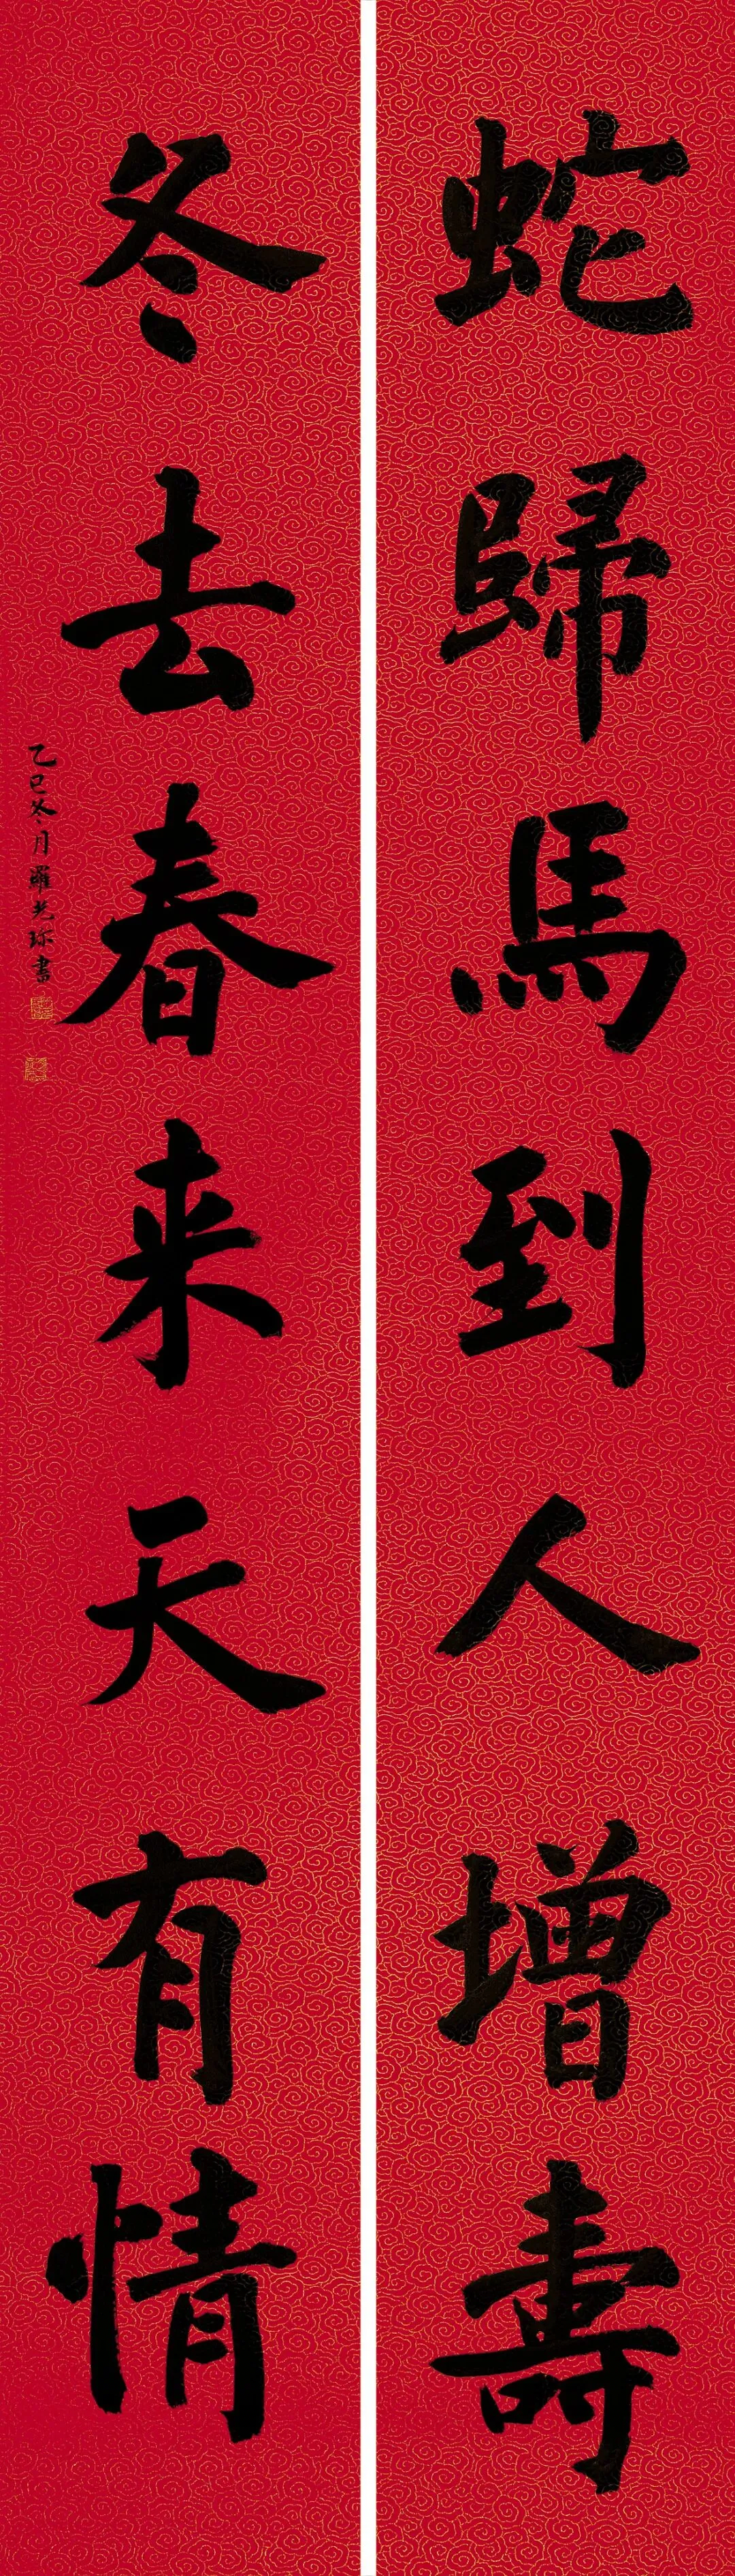 蛇歸馬到人增壽
冬去春来天有情
乙巳冬月羅光珍書